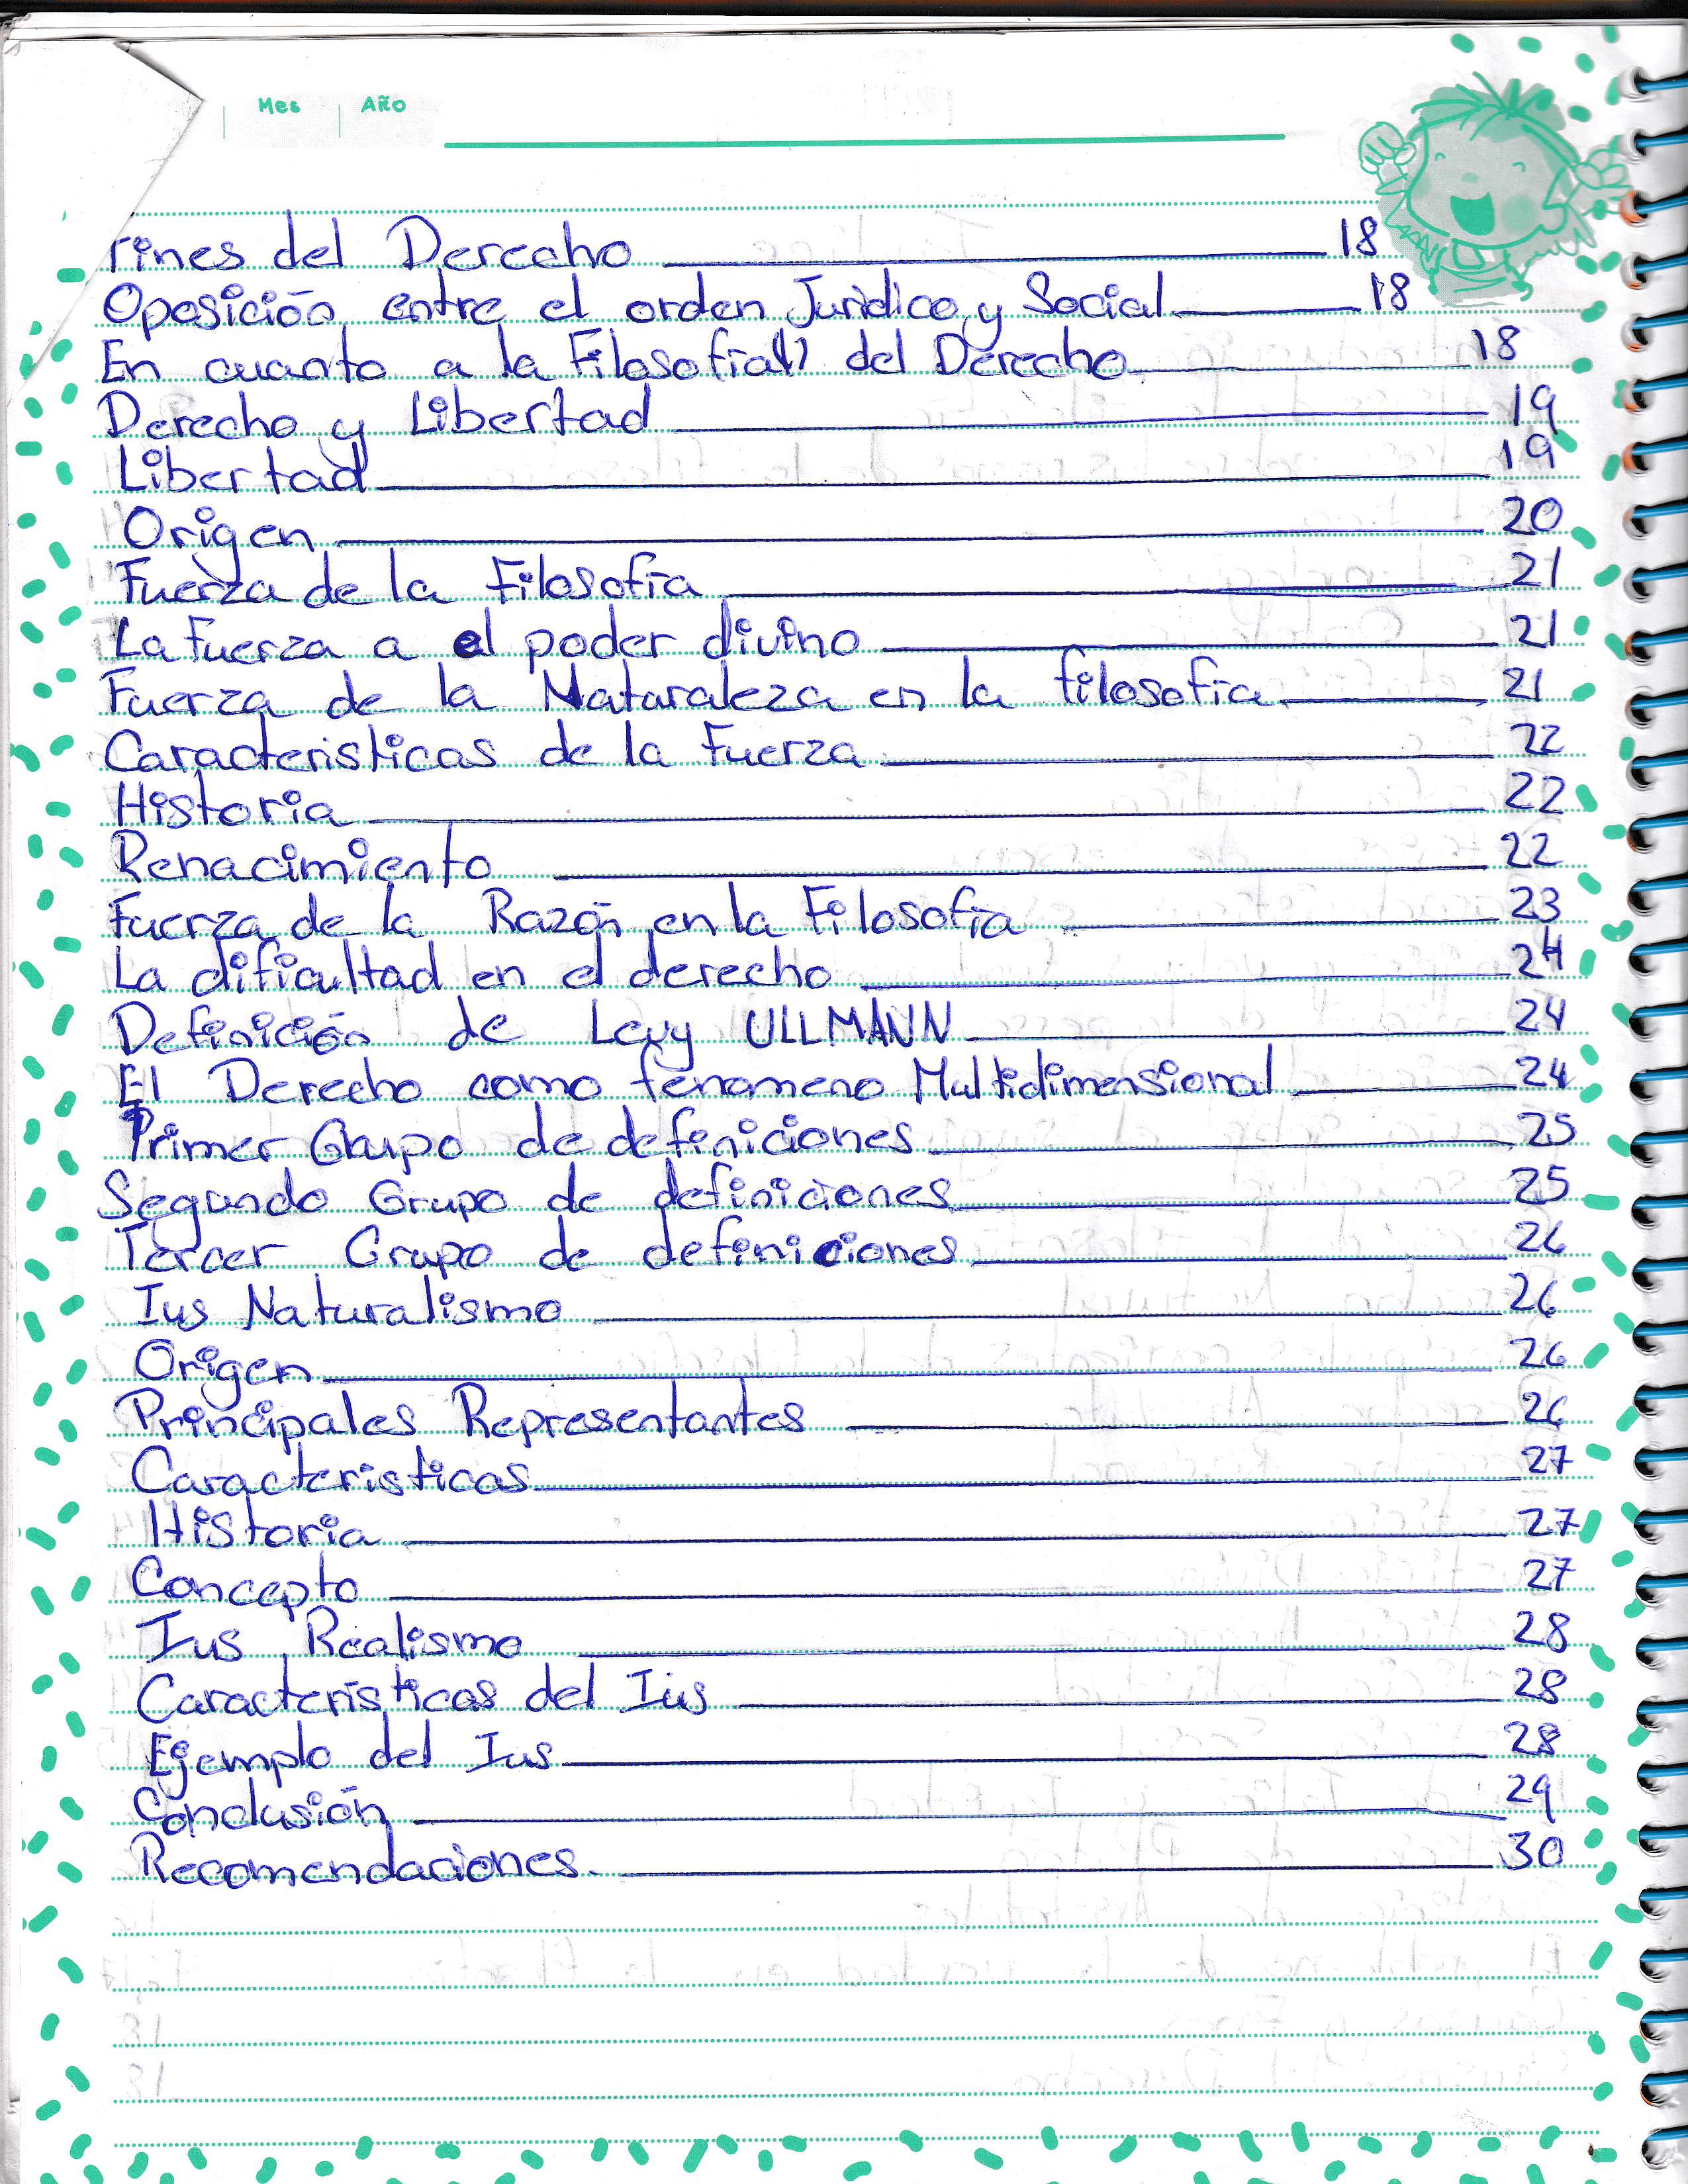 Mes Año
Fines del Derecho 18
Oposición entre el orden Juridico y Social 18
En cuanto a la Filosofia del Derecho 18
Derecho y Libertad 19
Libertad 19
Origen 20
Fuerza de la Filosofía 21
La Fuerza a el poder divino 21
Fuerza de la Naturaleza en la filosofía 21
Caracteristicas de la Fuerza 22
Historia 22
Renacimiento 22
Fuerza de la Razón en la Filosofía 23
La dificultad en el derecho 24
Definición de Levy ULLMANN 24
El Derecho como fenomeno Multidimensional 24
Primer Grupo de definiciones 25
Segundo Grupo de definiciones 25
Tercer Grupo de definiciones 26
Ius Naturalismo 26
Origen 26
Principales Representantes 26
Caracteristicas 27
Historia 27
Concepto 27
Ius Realismo 28
Características del Ius 28
Ejemplo del Ius 28
Conclusión 29
Recomendaciones 30